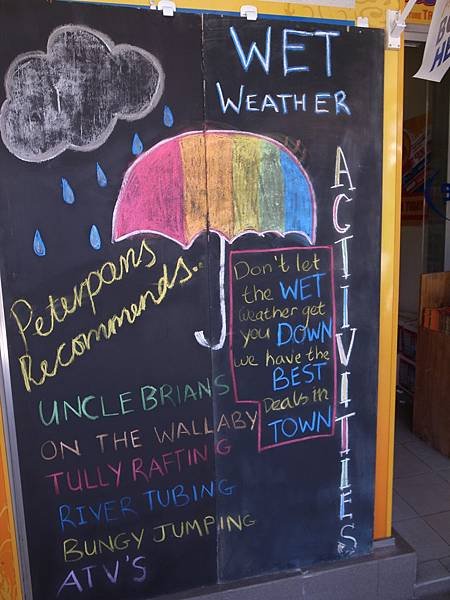 WET
WEATHER
ACTIVITIES
Peterpans
Recommends..
Don't let
the WET
Weather get
you DOWN
we have the
BEST
Deals in
TOWN
UNCLE BRIANS
ON THE WALLABY
TULLY RAFTING
RIVER TUBING
BUNGY JUMPING
ATV'S